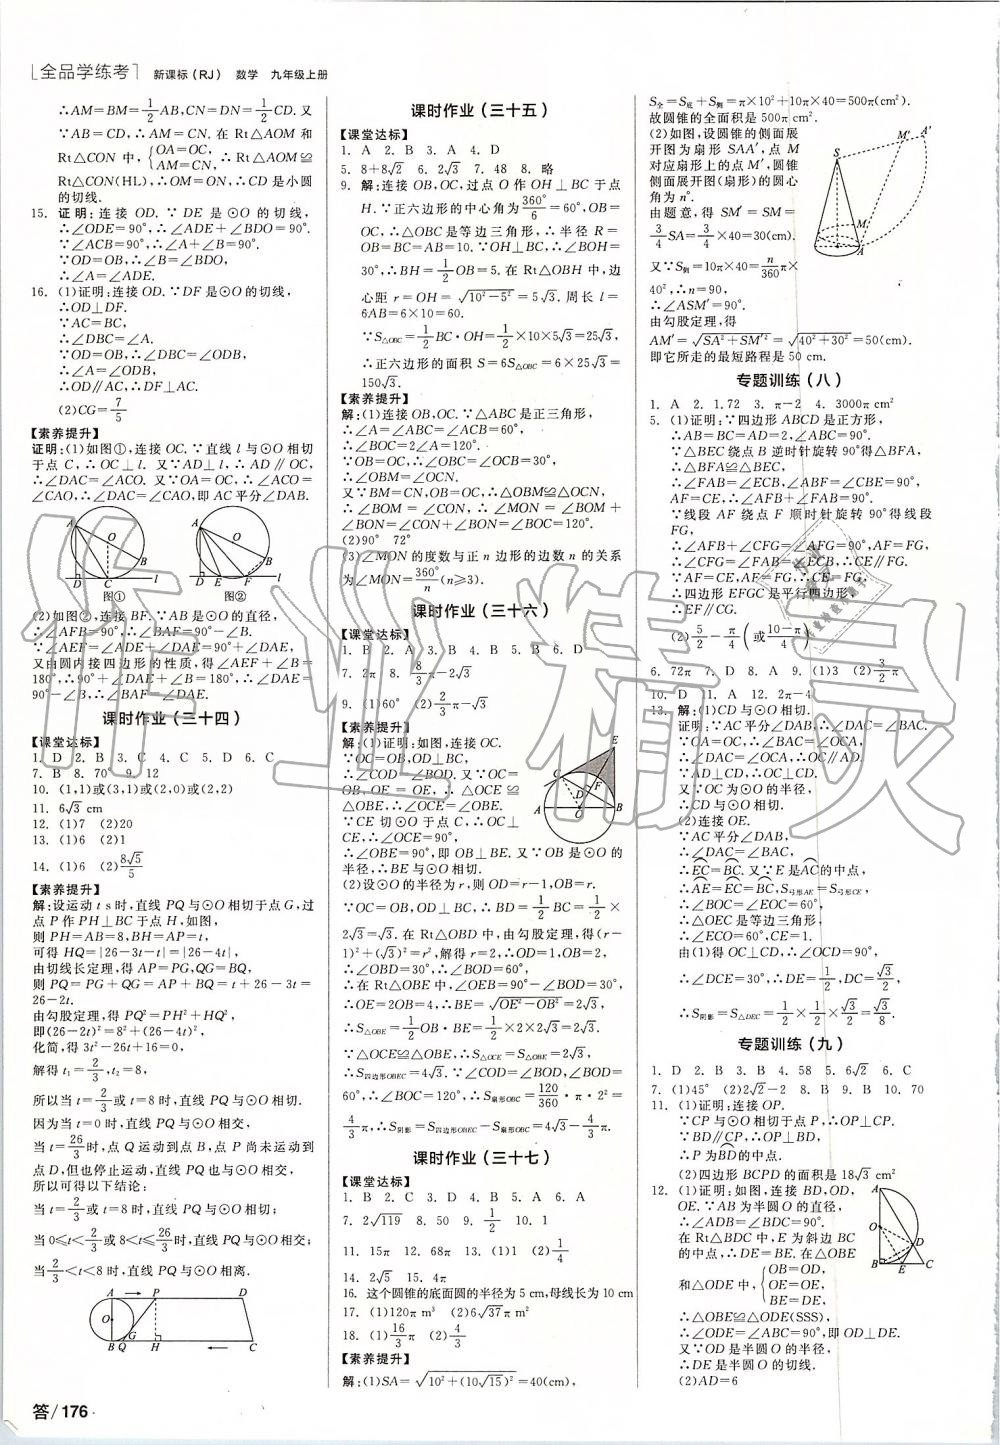 全品学练考 新课标(RJ) 数学 九年级上册
∴AM=BM=1/2AB,CN=DN=1/2CD.又
∵AB=CD,∴AM=CN.在Rt△AOM和
Rt△CON中,{OA=OC, AM=CN,∴Rt△AOM≌
Rt△CON(HL),∴OM=ON,∴CD是小圆
的切线.
15. 证明:连接OD.∵DE是⊙O的切线,
∴∠ODE=90°,∴∠ADE+∠BDO=90°.
∵∠ACB=90°,∴∠A+∠B=90°.
∵OD=OB,∴∠B=∠BDO,
∴∠A=∠ADE.
16. (1)证明:连接OD.∵DF是⊙O的切线,
∴OD⊥DF.
∵AC=BC,
∴∠DBC=∠A.
∵OD=OB,∴∠DBC=∠ODB,
∴∠A=∠ODB,
∴OD∥AC,∴DF⊥AC.
(2)CG=7/5
【素养提升】
证明:(1)如图①,连接OC.∵直线l与⊙O相切
于点C,∴OC⊥l.又∵AD⊥l,∴AD∥OC,
∴∠DAC=∠ACO.又∵OA=OC,∴∠ACO=
∠CAO,∴∠DAC=∠CAO,即AC平分∠DAB.
A O B D C l
图①
A O B D E F l
图②
(2)如图②,连接BF.∵AB是⊙O的直径,
∴∠AFB=90°,∴∠BAF=90°-∠B.
∵∠AEF=∠ADE+∠DAE=90°+∠DAE,
又由圆内接四边形的性质,得∠AEF+∠B=
180°,∴90°+∠DAE+∠B=180°,∴∠DAE=
90°-∠B,∴∠BAF=∠DAE.
课时作业(三十四)
【课堂达标】
1. D 2. B 3. C 4. C 5. D 6. C
7. B 8. 70° 9. 12
10. (1,1)或(3,1)或(2,0)或(2,2)
11. 6√3 cm
12. (1)7 (2)20
13. (1)6 (2)1
14. (1)6 (2)8√5/5
【素养提升】
解:设运动t s时,直线PQ与⊙O相切于点G,过
点P作PH⊥BC于点H,如图,
则PH=AB=8,BH=AP=t,
可得HQ=|26-3t-t|=|26-4t|,
由切线长定理,得AP=PG,QG=BQ,
则PQ=PG+QG=AP+BQ=t+26-3t=
26-2t.
由勾股定理,得PQ²=PH²+HQ²,
即(26-2t)²=8²+(26-4t)²,
化简,得3t²-26t+16=0,
解得t₁=2/3,t₂=8,
所以当t=2/3或t=8时,直线PQ与⊙O相切.
因为当t=0时,直线PQ与⊙O相交,
当t=26/3时,点Q运动到点B,点P尚未运动到
点D,但也停止运动,直线PQ也与⊙O相交,
所以可得以下结论:
当t=2/3或t=8时,直线PQ与⊙O相切;
当0≤t<2/3或8<t≤26/3时,直线PQ与⊙O相交;
当2/3<t<8时,直线PQ与⊙O相离.
A P D
O
G
B Q H C
答/176
课时作业(三十五)
【课堂达标】
1. A 2. B 3. A 4. D
5. 8+8√2 6. 2√3 7. 48 8. 略
9. 解:连接OB,OC,过点O作OH⊥BC于点
H.∵正六边形的中心角为360°/6=60°,OB=
OC,∴△OBC是等边三角形,∴半径R=
OB=BC=AB=10.∵OH⊥BC,∴∠BOH=
30°,∴BH=1/2OB=5.在Rt△OBH中,边
心距r=OH=√(10²-5²)=5√3.周长l=
6AB=6×10=60.
∵S△OBC=1/2BC·OH=1/2×10×5√3=25√3,
∴正六边形的面积S=6S△OBC=6×25√3=
150√3.
【素养提升】
解:(1)连接OB,OC.∵△ABC是正三角形,
∴∠A=∠ABC=∠ACB=60°,
∴∠BOC=2∠A=120°.
∵OB=OC,∴∠OBC=∠OCB=30°,
∴∠OBM=∠OCN.
又∵BM=CN,OB=OC,∴△OBM≌△OCN,
∴∠BOM=∠CON,∴∠MON=∠BOM+
∠BON=∠CON+∠BON=∠BOC=120°.
(2)90° 72°
(3)∠MON的度数与正n边形的边数n的关系
为∠MON=360°/n(n≥3).
课时作业(三十六)
【课堂达标】
1. B 2. A 3. B 4. B 5. B 6. D
7. 2π 8. 8/3π-2√3
9. (1)60° (2)2/3π-√3
【素养提升】
解:(1)证明:如图,连接OC.
∵OC=OB,OD⊥BC,
∴∠COD=∠BOD.又∵OC=
OB,OE=OE,∴△OCE≌
△OBE,∴∠OCE=∠OBE.
∵CE切⊙O于点C,∴OC⊥
CE,∴∠OCE=90°,
∴∠OBE=90°,即OB⊥BE.又∵OB是⊙O的半
径,∴BE与⊙O相切.
(2)设⊙O的半径为r,则OD=r-1.
∵OC=OB,OD⊥BC,∴BD=1/2BC=1/2×
2√3=√3.在Rt△OBD中,由勾股定理,得(r-
1)²+(√3)²=r²,解得r=2,∴OD=1,OB=2,
∴∠OBD=30°,∴∠BOD=60°,
∴在Rt△OBE中,∠OEB=90°-∠BOE=30°,
∴OE=2OB=4,∴BE=√(OE²-OB²)=2√3,
∴S△OBE=1/2OB·BE=1/2×2×2√3=2√3.
∵△OCE≌△OBE,∴S△OCE=S△OBE=2√3,
∴S四边形OBEC=4√3.∵∠COD=∠BOD=
60°,∴∠BOC=120°,∴S扇形OBC=120/360·π·2²=
4/3π,∴S阴影=S四边形OBEC-S扇形OBC=4√3-4/3π.
课时作业(三十七)
【课堂达标】
1. B 2. C 3. D 4. B 5. A 6. A
7. 2√119 8. 50 9. 1/2 10. 1
11. 15π 12. 68π 13. (1)1 (2)1/4
14. 2√5 15. 4π
16. 这个圆锥的底面圆的半径为5 cm,母线长为10 cm
17. (1)120π m³ (2)6√37π m²
18. (1)16/3π (2)4/3
【素养提升】
解:(1)SA=√(10²+(10√15)²)=40(cm),
S全=S底+S侧=π×10²+10π×40=500π(cm²).
故圆锥的全面积是500π cm².
(2)如图,设圆锥的侧面展
开图为扇形SAA′,点M
对应扇形上的点M′,圆锥
侧面展开图(扇形)的圆心
角为n°.
由题意,得SM′=SM=
3/4SA=3/4×40=30(cm).
又∵S侧=10π×40=n/360π×
40²,∴n=90,
∴∠ASM′=90°.
由勾股定理,得
AM′=√(SA²+SM′²)=√(40²+30²)=50(cm).
即它所走的最短路程是50 cm.
S M′ A′ M A
专题训练(八)
1. A 2. 1.72 3. π-2 4. 3000π cm²
5. (1)证明:∵四边形ABCD是正方形,
∴AB=BC=AD=2,∠ABC=90°.
∵△BEC绕点B逆时针旋转90°得△BFA,
∴△BFA≌△BEC,
∴∠FAB=∠ECB,∠ABF=∠CBE=90°,
AF=CE,∴∠AFB+∠FAB=90°.
∵线段AF绕点F顺时针旋转90°得线段
FG,
∴∠AFB+∠CFG=∠AFG=90°,
∴∠CFG=∠FAB=∠ECB,∴CE∥FG.
∵AF=CE,AF=FG,∴CE=FG,
∴四边形EFGC是平行四边形,
∴EF∥CG.
(2)5/2-π/4(或(10-π)/4)
6. 72π 7. D 8. A 9. (1)3 (2)3/2π
10. D 11. A 12. 2π-4
13. 解:(1)CD与⊙O相切.
证明:∵AC平分∠DAB,∴∠DAC=∠BAC.
∵OA=OC,∴∠BAC=∠OCA,
∴∠DAC=∠OCA,∴OC∥AD.
∵AD⊥CD,∴OC⊥CD.
又∵OC为⊙O的半径,
∴CD与⊙O相切.
(2)连接OE.
∵AC平分∠DAB,
∴∠DAC=∠BAC,
∴EC=BC.又∵E是AC的中点,
∴AE=EC=BC,S弓形AE=S弓形CE,
∴∠BOC=∠EOC=60°,
∴△OEC是等边三角形,
∴∠ECO=60°,CE=OC=1.
由(1)得OC⊥CD,∴∠OCD=90°,
∴∠DCE=30°,∴DE=1/2,DC=√3/2,
∴S阴影=S△DEC=1/2×1/2×√3/2=√3/8.
专题训练(九)
1. D 2. B 3. B 4. 58 5. 6√2 6. C
7. (1)45° (2)2√2-2 8. B 9. B 10. 70
11. (1)证明:连接OP.
∵CP与⊙O相切于点P,∴CP⊥OP.
∵BD∥CP,∴BD⊥OP,
∴P为BD的中点.
(2)四边形BCPD的面积是18√3 cm²
12. (1)证明:如图,连接BD,OD,
OE.∵AB为半圆O的直径,
∴∠ADB=∠BDC=90°.
在Rt△BDC中,E为斜边BC
的中点,∴DE=BE.在△OBE
和△ODE中,{OB=OD, OE=OE, BE=DE,
∴△OBE≌△ODE(SSS),
∴∠ODE=∠ABC=90°,即OD⊥DE.
又∵OD是半圆O的半径,
∴DE是半圆O的切线.
(2)AD=6
A O D B E C
作业精灵